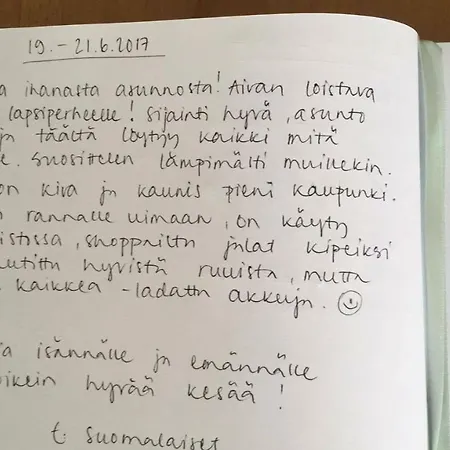 19. – 21.6.2017
ihanasta asunnosta! Aivan loistava
lapsiperheelle! Sijainti hyvä, asunto
ja täältä löytyy kaikki mitä
suosittelen lämpimästi muillekin.
on kiva ja kaunis pieni kaupunki.
rannalle uimaan, on käyty
shoppailtu jalat kipeiksi
hyvistä ruuista, mutta
kaikkea - ladattu akkuja. ☺
isännälle ja emännälle
oikein hyvää kesää!
t. suomalaiset